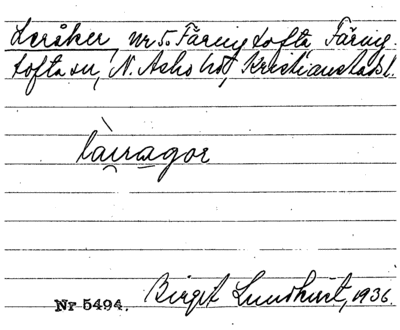 Leråker, nr 5 Färingtofta Färing-
tofta sn, N. Åsbo hd, Kristianstads l.
làiragor
Nr 5494. Birgit Lundkvist, 1936.